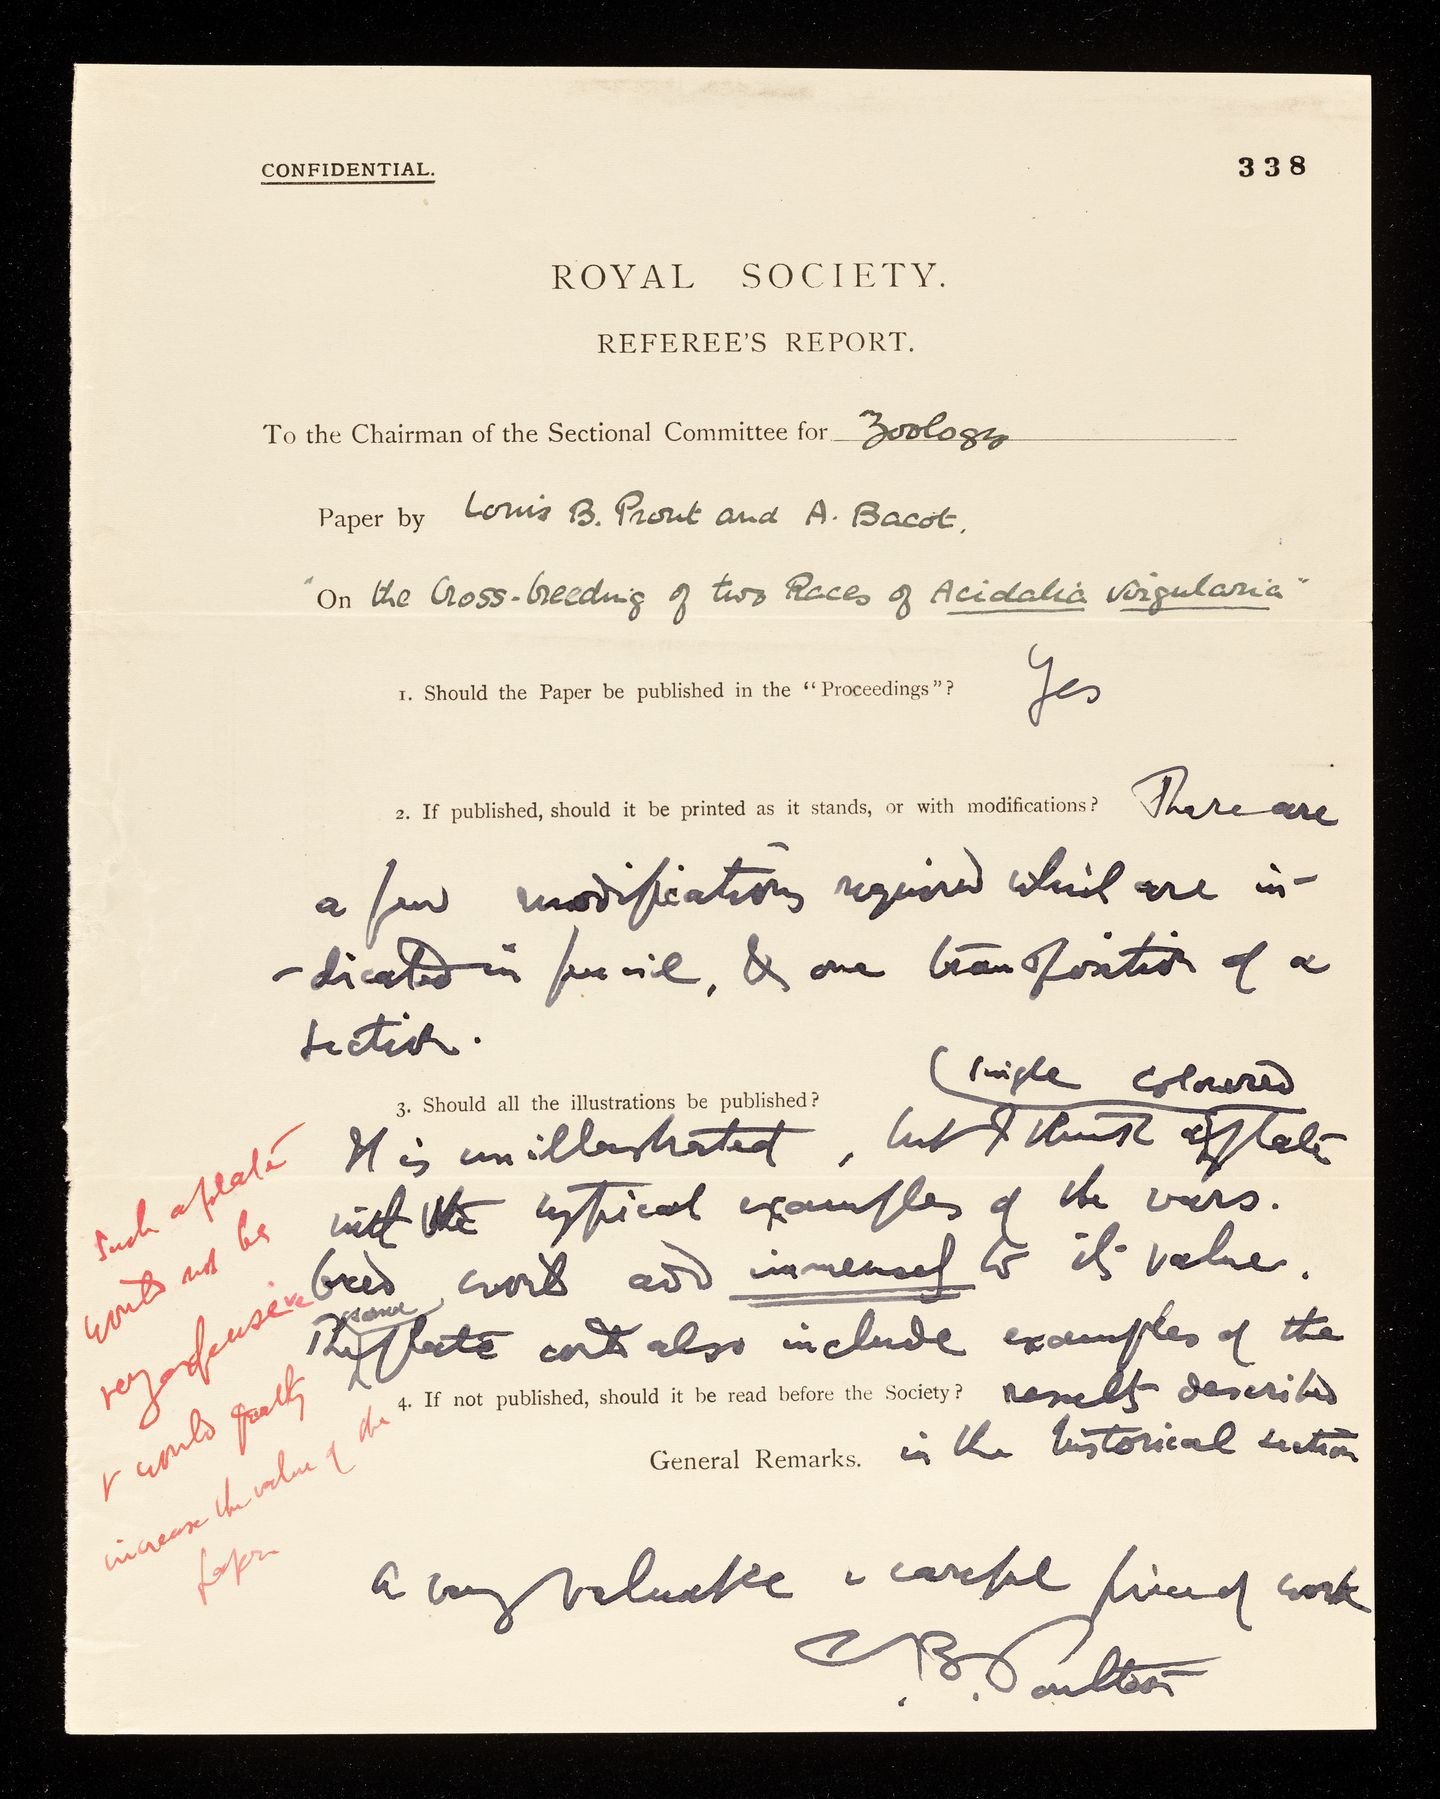 CONFIDENTIAL.
338
ROYAL SOCIETY.
REFEREE'S REPORT.
To the Chairman of the Sectional Committee for Zoology
Paper by Louis B. Prout and A. Bacot.
"On the Cross-breeding of two Races of Acidalia virgularia"
1. Should the Paper be published in the "Proceedings"? Yes
2. If published, should it be printed as it stands, or with modifications? There are
a few modifications required which are in-
-dicated in pencil, & one transposition of a
section.
single coloured
3. Should all the illustrations be published?
It is unillustrated, but I think a plate
with the typical examples of the vars.
bred would add immensely to its value.
same
The plate could also include examples of the
4. If not published, should it be read before the Society? results described
General Remarks. in the historical section
Such a plate
would not be
very expensive
& would greatly
increase the value of the
paper
A very valuable & careful piece of work
E. B. Poulton